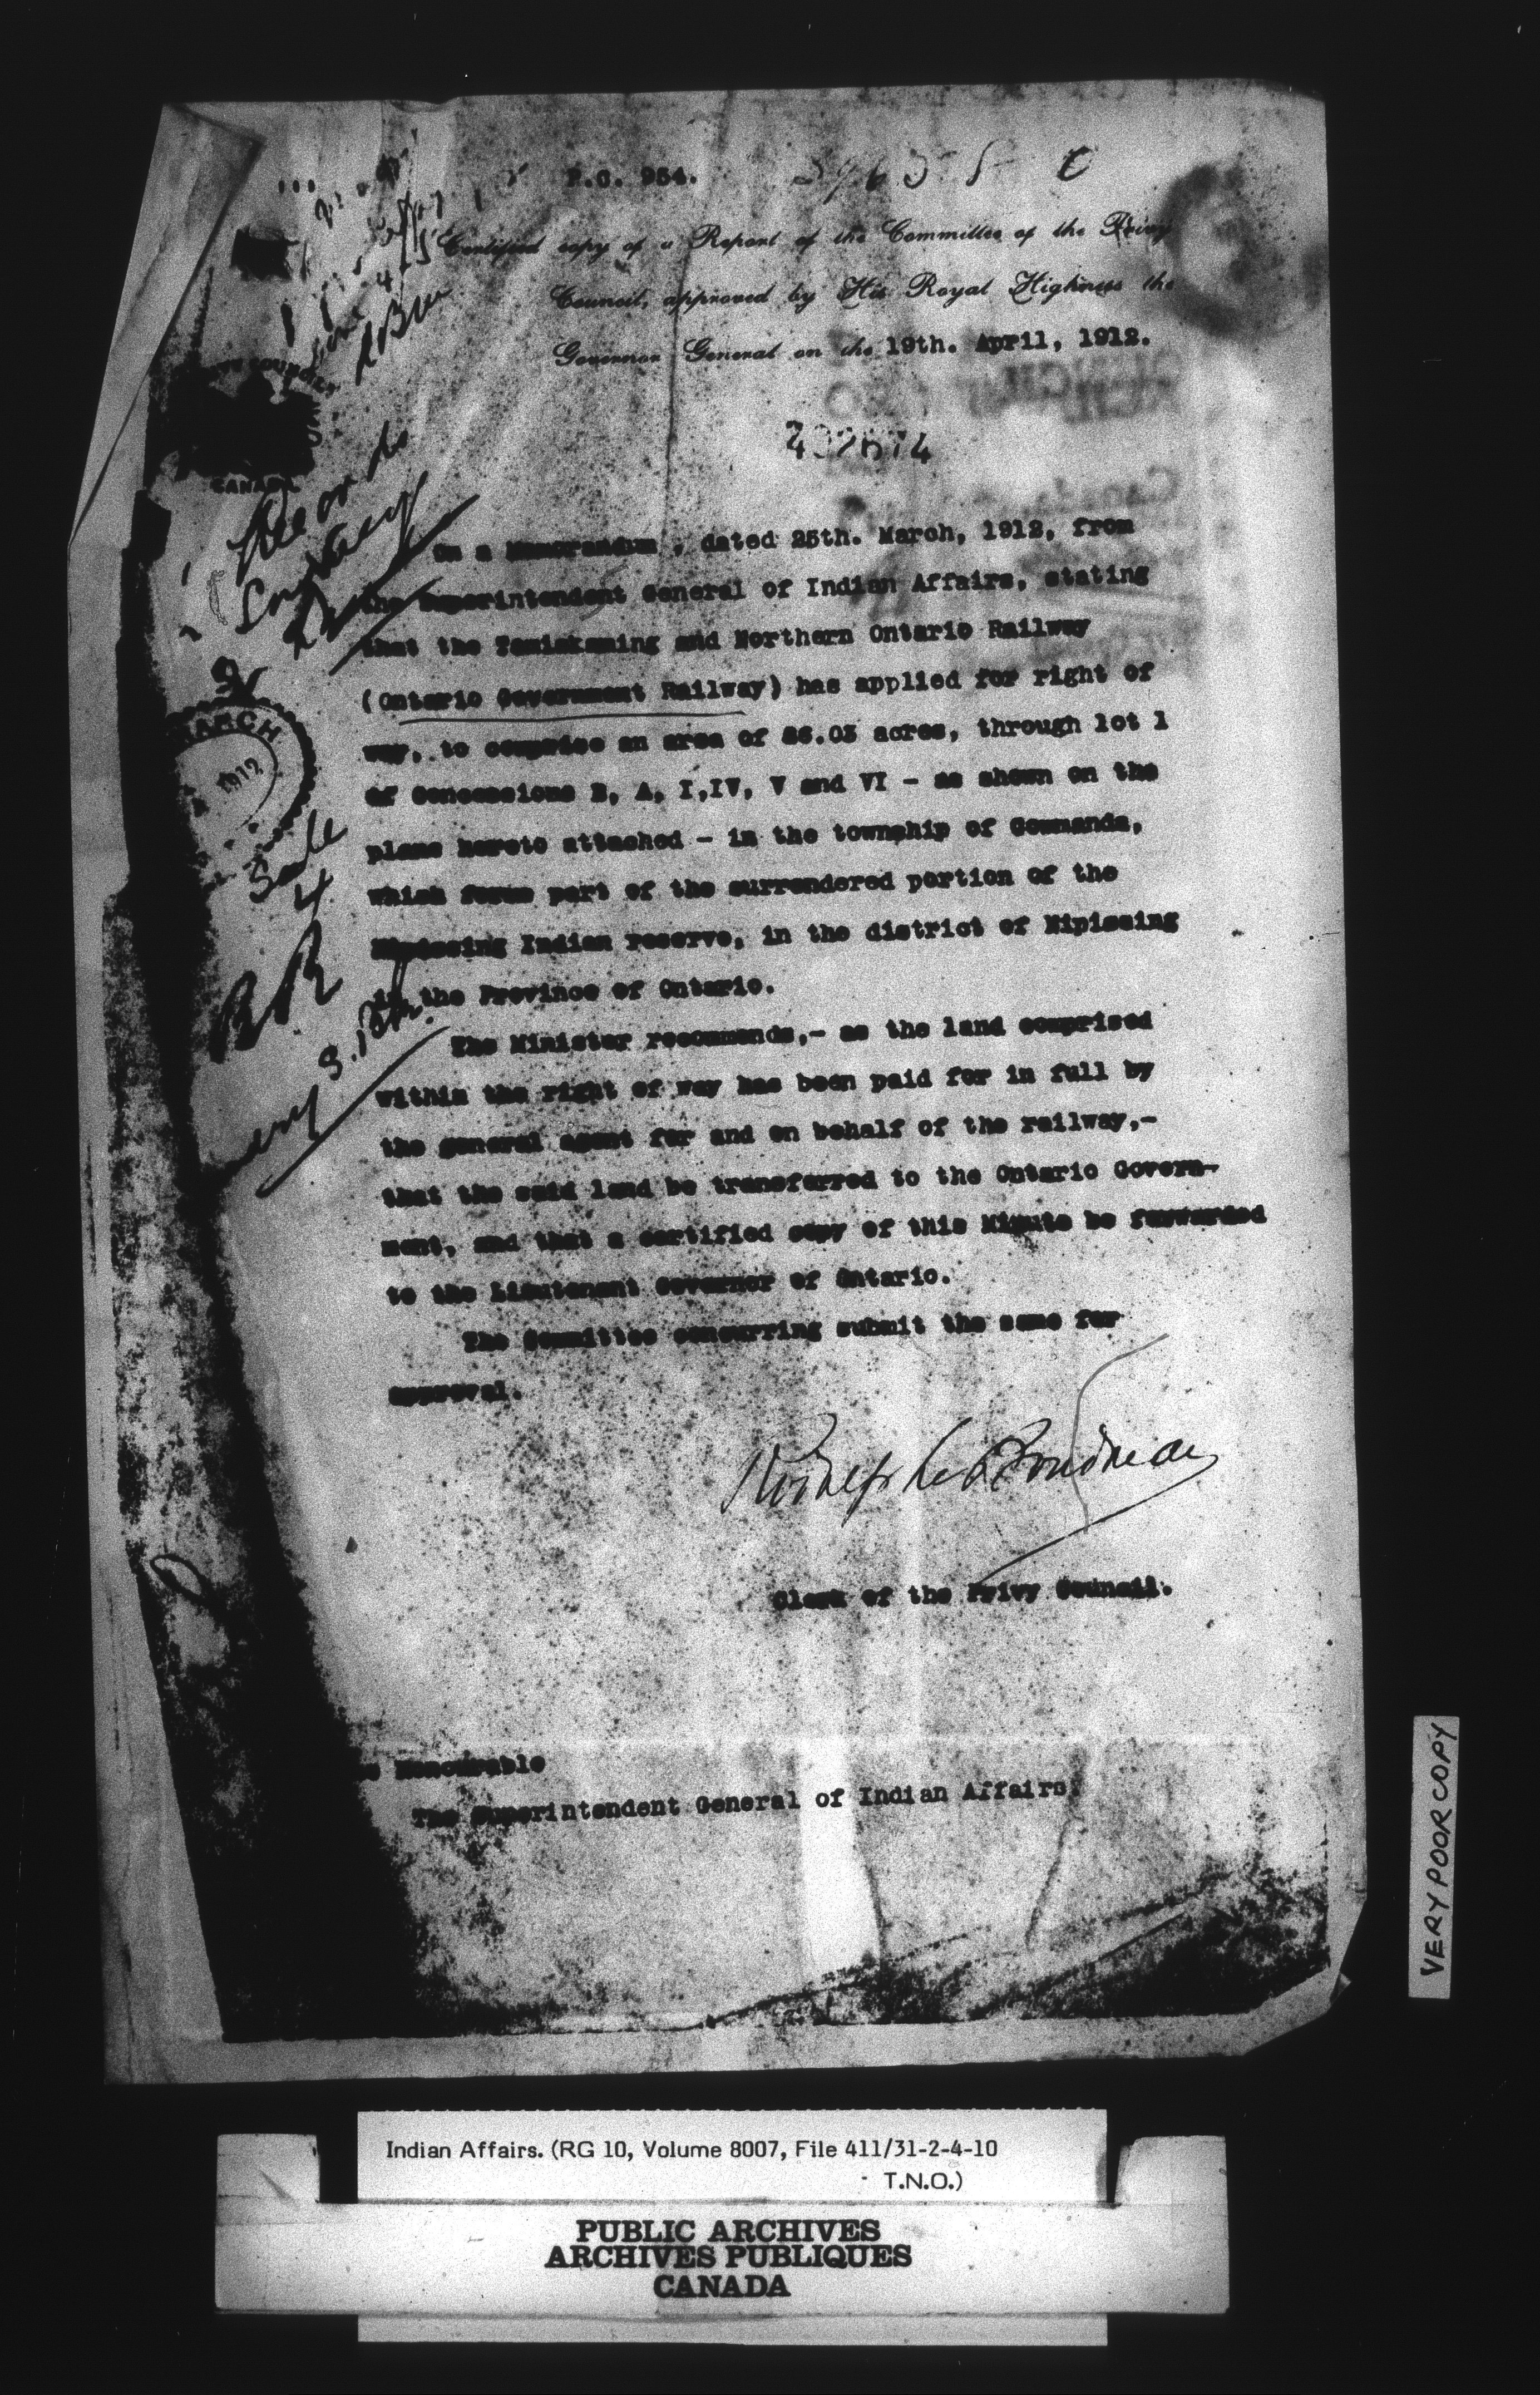 P.C. 954.
Certified copy of a Report of the Committee of the Privy
Council, approved by His Royal Highness the
Governor General on the 19th. April, 1912.
402674
CANADA
On a Memorandum, dated 25th. March, 1912, from
the Superintendent General of Indian Affairs, stating
that the Temiskaming and Northern Ontario Railway
(Ontario Government Railway) has applied for right of
way, to comprise an area of 86.03 acres, through lot 1
of Concessions B, A, I,IV, V and VI - as shown on the
plans hereto attached - in the township of Commanda,
which forms part of the surrendered portion of the
Nipissing Indian reserve, in the district of Nipissing
in the Province of Ontario.
The Minister recommends,- as the land comprised
within the right of way has been paid for in full by
the general agent for and on behalf of the railway,-
that the said land be transferred to the Ontario Govern-
ment, and that a certified copy of this Minute be forwarded
to the Lieutenant Governor of Ontario.
The Committee concurring submit the same for
approval.
MARCH
1912
Sale
Rodolphe Boudreau
Clerk of the Privy Council.
Honourable
The Superintendent General of Indian Affairs.
VERY POOR COPY
Indian Affairs. (RG 10, Volume 8007, File 411/31-2-4-10
T.N.O.)
PUBLIC ARCHIVES
ARCHIVES PUBLIQUES
CANADA